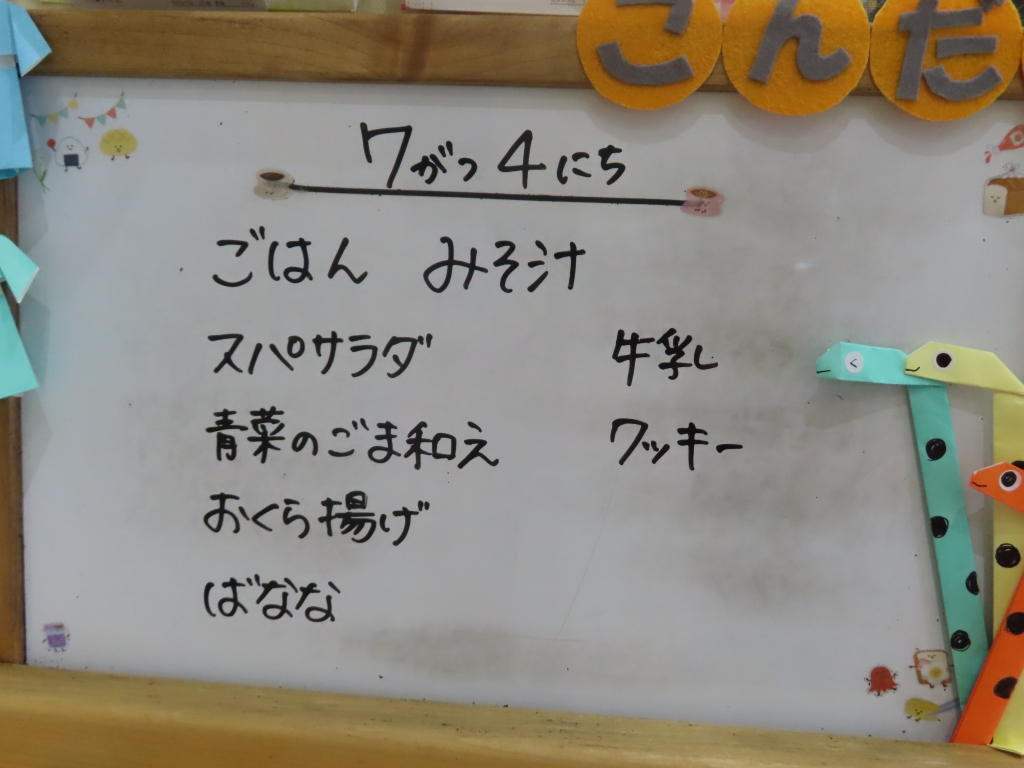 こんだ
7がつ4にち
ごはん みそ汁
スパサラダ 牛乳
青菜のごま和え クッキー
おくら揚げ
ばなな